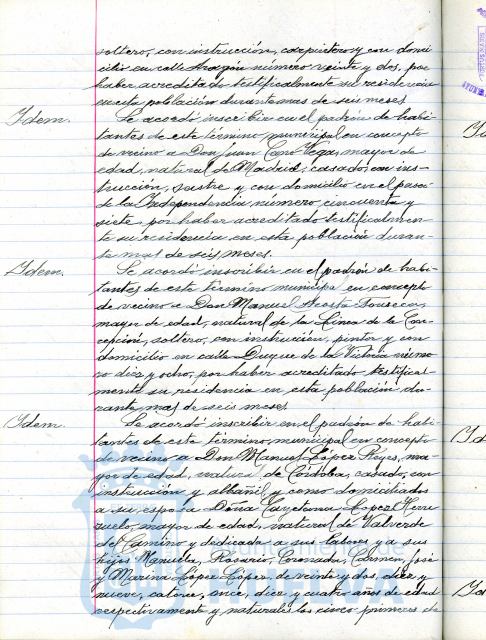 soltero, con instrucción, carpintero y con domi-
cilio en calle Aragón número veinte y dos, por
haber acreditado testificalmente su residencia
en esta población durante mas de seis meses.
Idem. Se acordó inscribir en el padrón de habi-
tantes de este término municipal en concepto
de vecino a Don Juan Cano Vegas, mayor de
edad, natural de Madrid, casado, con ins-
trucción, sastre y con domicilio en el paseo
de la Independencia número, cincuenta y
siete, por haber acreditado testificalmen-
te su residencia en esta población duran-
te mas de seis meses.
Idem. Se acordó inscribir en el padrón de habi-
tantes de este término municipal en concepto
de vecino a Don Manuel Acosta Fonseca,
mayor de edad, natural de la Linea de la Con-
cepción, soltero, con instrucción, pintor y con
domicilio en calle Duque de la Victoria núme-
ro diez y ocho, por haber acreditado testifical-
mente su residencia en esta población du-
rante mas de seis meses.
Idem. Se acordó inscribir en el padrón de habi-
tantes de este término municipal en concepto
de vecino a Don Manuel López Reyes, ma-
yor de edad, natural de Córdoba, casado, con
instrucción y albañil y como domiciliados
a su esposa Doña Cayetana López Herre-
zuelo, mayor de edad, natural de Valverde
del Camino y dedicada a sus labores y a sus
hijos Manuela, Rosario, Coronada, Carmen, José
y Marina López López, de veinte y dos, diez y
nueve, catorce, once, diez y cuatro años de edad
respectivamente y naturales los cinco primeros de